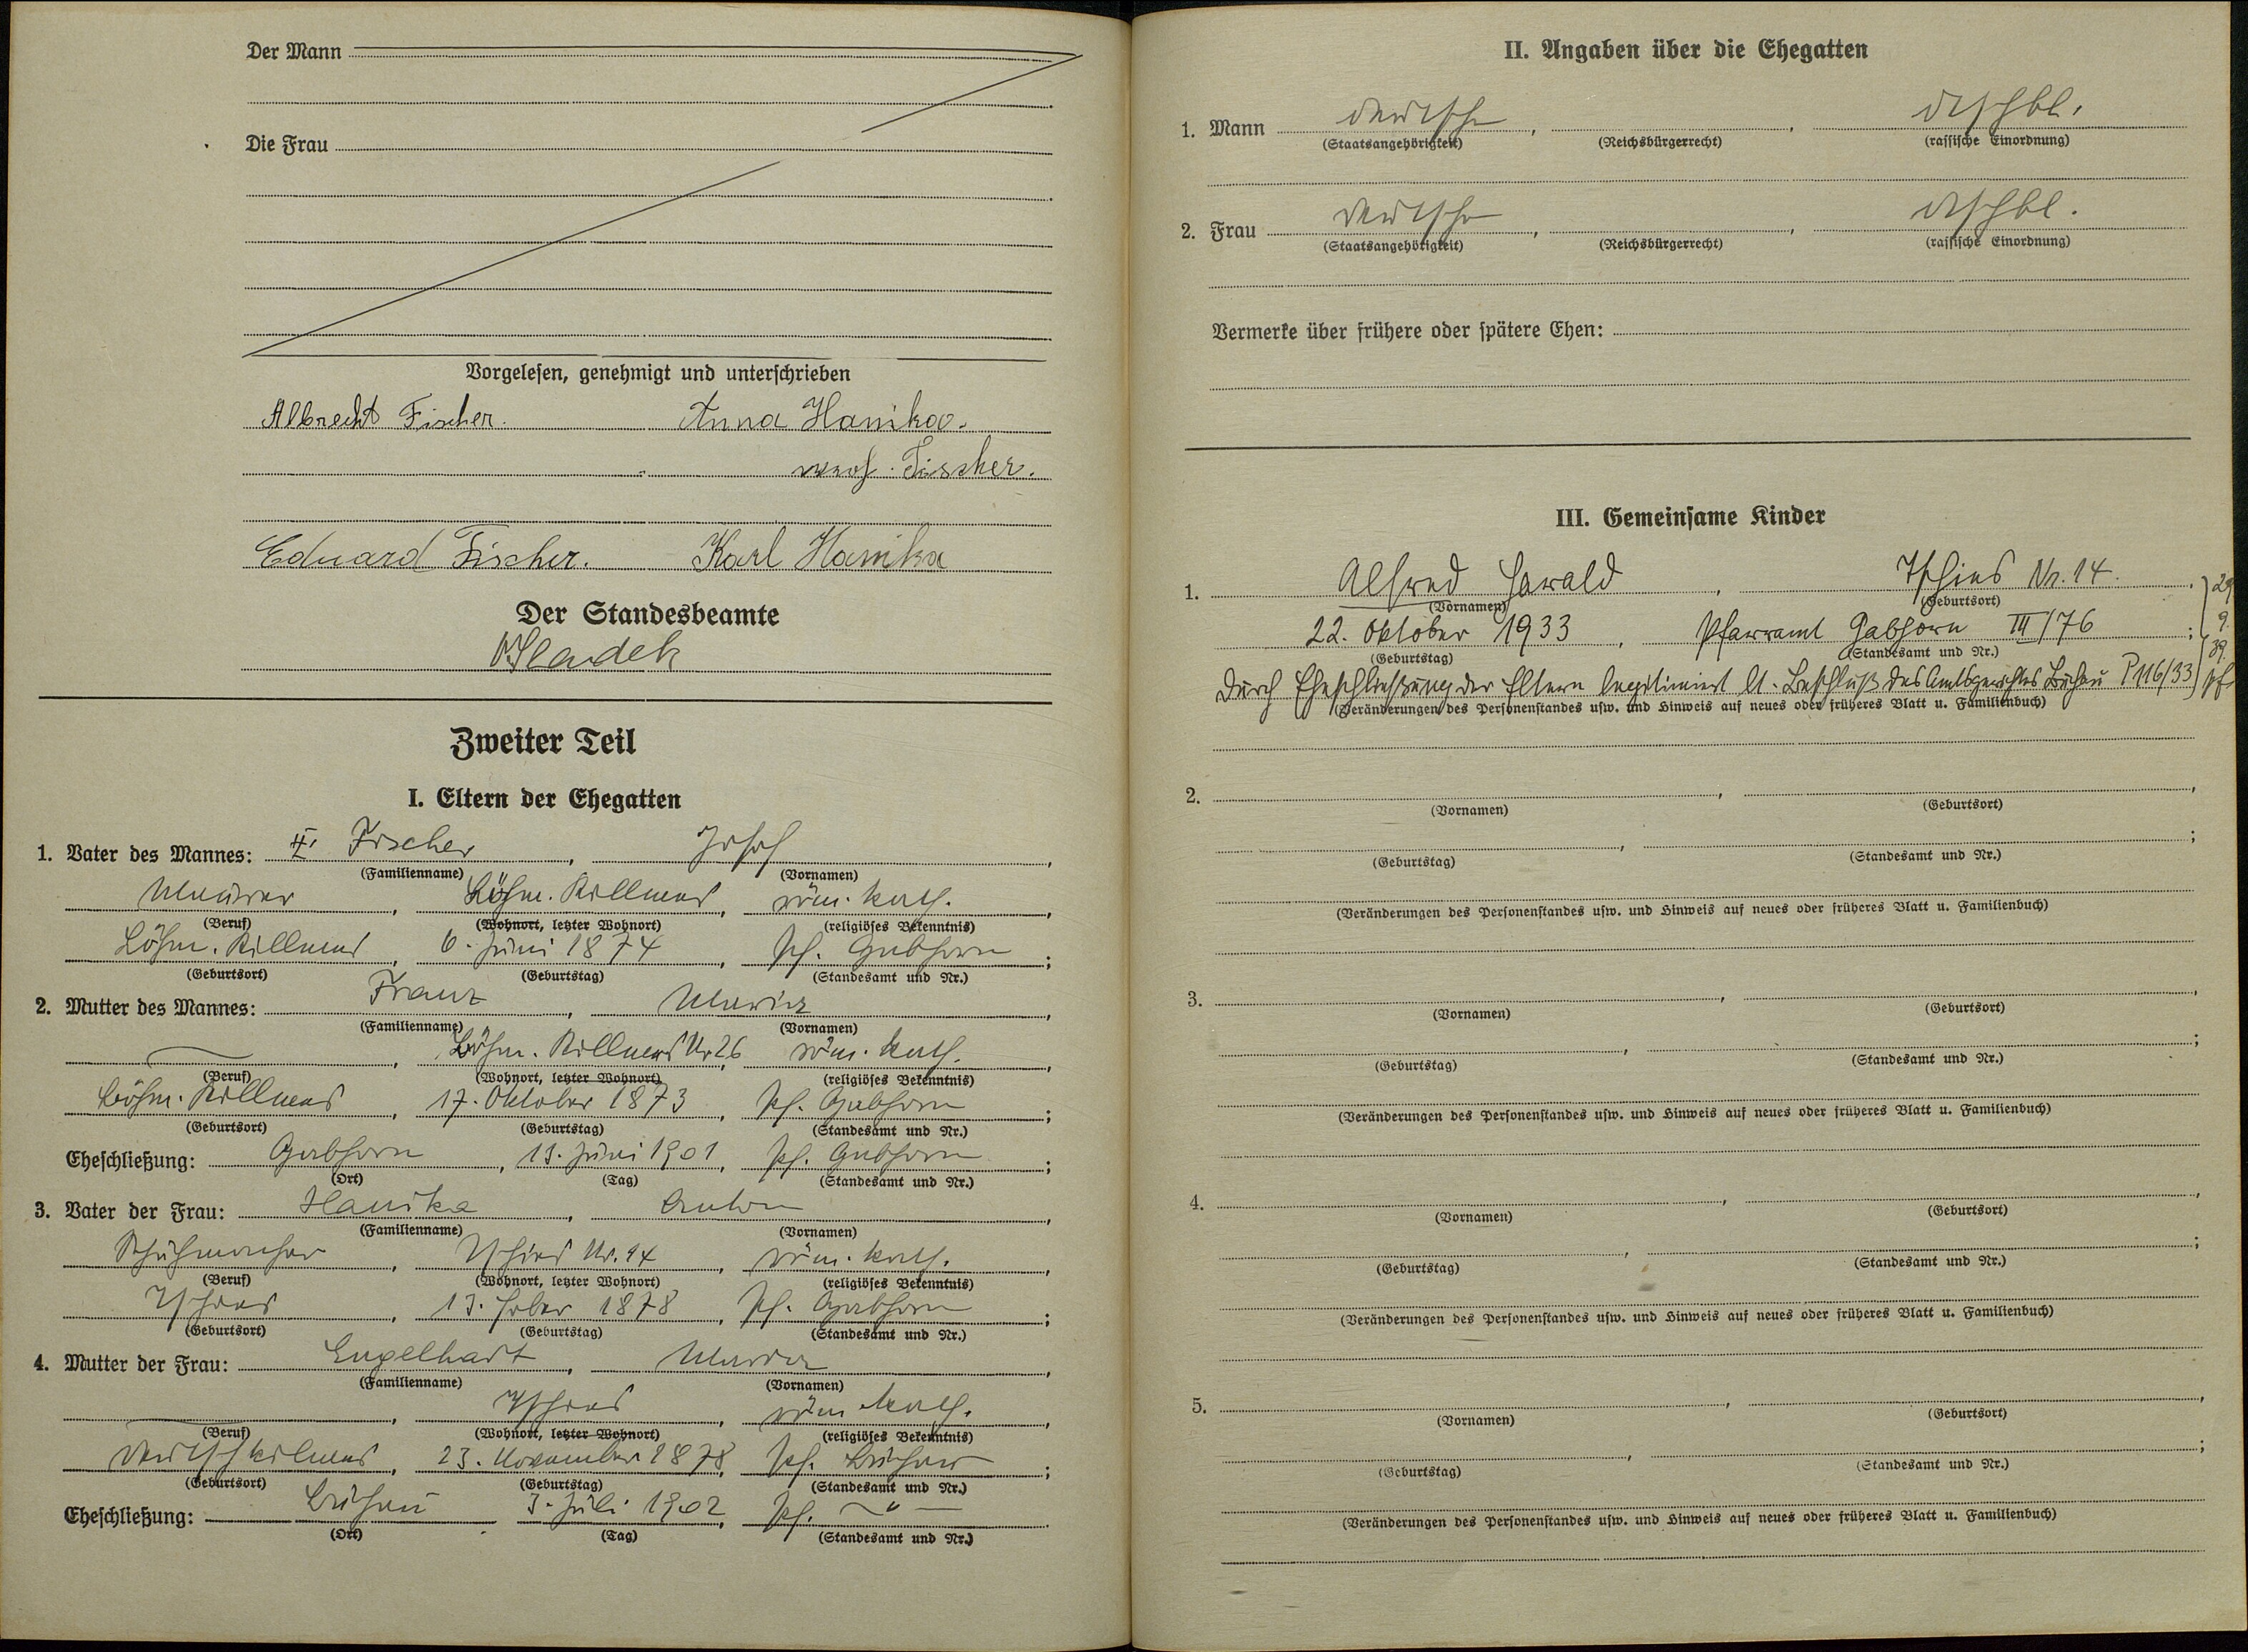 Der Mann
Die Frau
Vorgelesen, genehmigt und unterschrieben
Albrecht Fischer. Anna Hanika.
Fischer.
Eduard Fischer. Karl Hanika
Der Standesbeamte
Zweiter Teil
I. Eltern der Ehegatten
1. Vater des Mannes: Fischer, Josef,
(Familienname) (Vornamen)
Maurer, Böhm. Killmes, röm. kath.,
(Beruf) (Wohnort, letzter Wohnort) (religiöses Bekenntnis)
Böhm. Killmes, 6. Juni 1874, Pf. Gabhorn;
(Geburtsort) (Geburtstag) (Standesamt und Nr.)
2. Mutter des Mannes: Franz, Maria,
(Familienname) (Vornamen)
Böhm. Killmes Nr 26, röm. kath.,
(Beruf) (Wohnort, letzter Wohnort) (religiöses Bekenntnis)
Böhm. Killmes, 17. Oktober 1873, Pf. Gabhorn;
(Geburtsort) (Geburtstag) (Standesamt und Nr.)
Eheschließung: Gabhorn, Juni 1901, Pf. Gabhorn;
(Ort) (Tag) (Standesamt und Nr.)
3. Vater der Frau: Hanika, Anton,
(Familienname) (Vornamen)
Schuhmacher, Tschies Nr. 14, röm. kath.,
(Beruf) (Wohnort, letzter Wohnort) (religiöses Bekenntnis)
Tschies, 1878, Pf. Gabhorn;
(Geburtsort) (Geburtstag) (Standesamt und Nr.)
4. Mutter der Frau: Engelhart, Maria,
(Familienname) (Vornamen)
Tschies, röm kath.,
(Beruf) (Wohnort, letzter Wohnort) (religiöses Bekenntnis)
Deutschkilmes, 23. November 1878, Pf. Buchau;
(Geburtsort) (Geburtstag) (Standesamt und Nr.)
Eheschließung: Buchau Juli 1902, Pf. — " —
(Ort) (Tag) (Standesamt und Nr.)
II. Angaben über die Ehegatten
1. Mann deutsche, , dtschbl.
(Staatsangehörigkeit) (Reichsbürgerrecht) (rassische Einordnung)
2. Frau deutsche, , dtschbl.
(Staatsangehörigkeit) (Reichsbürgerrecht) (rassische Einordnung)
Vermerke über frühere oder spätere Ehen:
III. Gemeinsame Kinder
1. Alfred Harald, Tschies Nr. 14.,
(Vornamen) (Geburtsort)
22. Oktober 1933, Pfarramt Gabhorn III/76;
(Geburtstag) (Standesamt und Nr.)
Durch Eheschließung der Eltern legitimiert lt. Beschluß des Amtsgerichtes Buchau P 116/33
29.
9.
39.
(Veränderungen des Personenstandes usw. und Hinweis auf neues oder früheres Blatt u. Familienbuch)
2. , ,
(Vornamen) (Geburtsort)
, ;
(Geburtstag) (Standesamt und Nr.)
(Veränderungen des Personenstandes usw. und Hinweis auf neues oder früheres Blatt u. Familienbuch)
3. , ,
(Vornamen) (Geburtsort)
, ;
(Geburtstag) (Standesamt und Nr.)
(Veränderungen des Personenstandes usw. und Hinweis auf neues oder früheres Blatt u. Familienbuch)
4. , ,
(Vornamen) (Geburtsort)
, ;
(Geburtstag) (Standesamt und Nr.)
(Veränderungen des Personenstandes usw. und Hinweis auf neues oder früheres Blatt u. Familienbuch)
5. , ,
(Vornamen) (Geburtsort)
, ;
(Geburtstag) (Standesamt und Nr.)
(Veränderungen des Personenstandes usw. und Hinweis auf neues oder früheres Blatt u. Familienbuch)